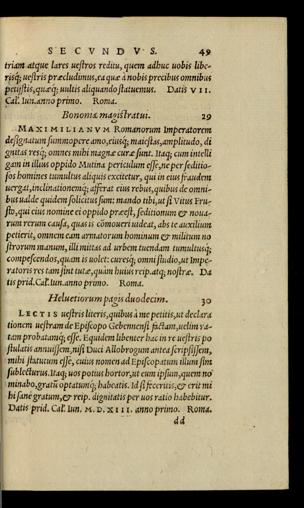 SECVNDVS. 49
triam atque lares uestros reditu, quem adhuc uobis libe-
risq; uestris præcludimus, ea quæ à nobis precibus omnibus
petijstis, quæq; uultis aliquando statuemus. Datis VII.
Cal. Iun. anno primo. Roma.
Bononiæ magistratui. 29
MAXIMILIANVM Romanorum Imperatorem
designatum summopere amo, eiusq; maiestas, amplitudo, di
gnitas resq; omnes mihi magnæ curæ sunt. Itaq; cum intelli
gam in illius oppido Mutina periculum esse, ne per seditio-
sos homines tumultus aliquis excitetur, qui in eius fraudem
uergat, inclinationemq; afferat eius rebus, quibus de omni-
bus ualde quidem solicitus sum: mando tibi, ut si Vitus Fru-
sto, qui eius nomine ei oppido præest, seditionum & noua-
rum rerum causa, quas is cōmoueri uideat, abs te auxilium
petierit, omnem eam armatorum hominum & militum no
strorum manum, illi mittas ad urbem tuendam tumultusq;
compescendos, quam is uolet: curesq; omni studio, ut Impe-
ratoris res tam sint tutæ, quàm huius reip. atq; nostræ. Da
tis prid. Cal. Iun. anno primo. Roma.
Heluetiorum pagis duodecim. 30
LECTIS uestris literis, quibus à me petitis, ut declara
tionem uestram de Episcopo Gebennensi factam, uelim ra-
tam probatamq; esse. Equidem libenter hac in re uestris po
stulatis annuissem, nisi Duci Allobrogum antea scripsissem,
mihi statutum esse, cuius nomen ad Episcopatum illum sim
subiecturus. Itaq; uos potius hortor, ut eum ipsum, quem no
minabo, gratū optatumq; habeatis. Id si feceritis, & erit mi
hi sanè gratum, & reip. dignitatis per uos ratio habebitur.
Datis prid. Cal. Iun. M.D.XIII. anno primo. Roma.
dd